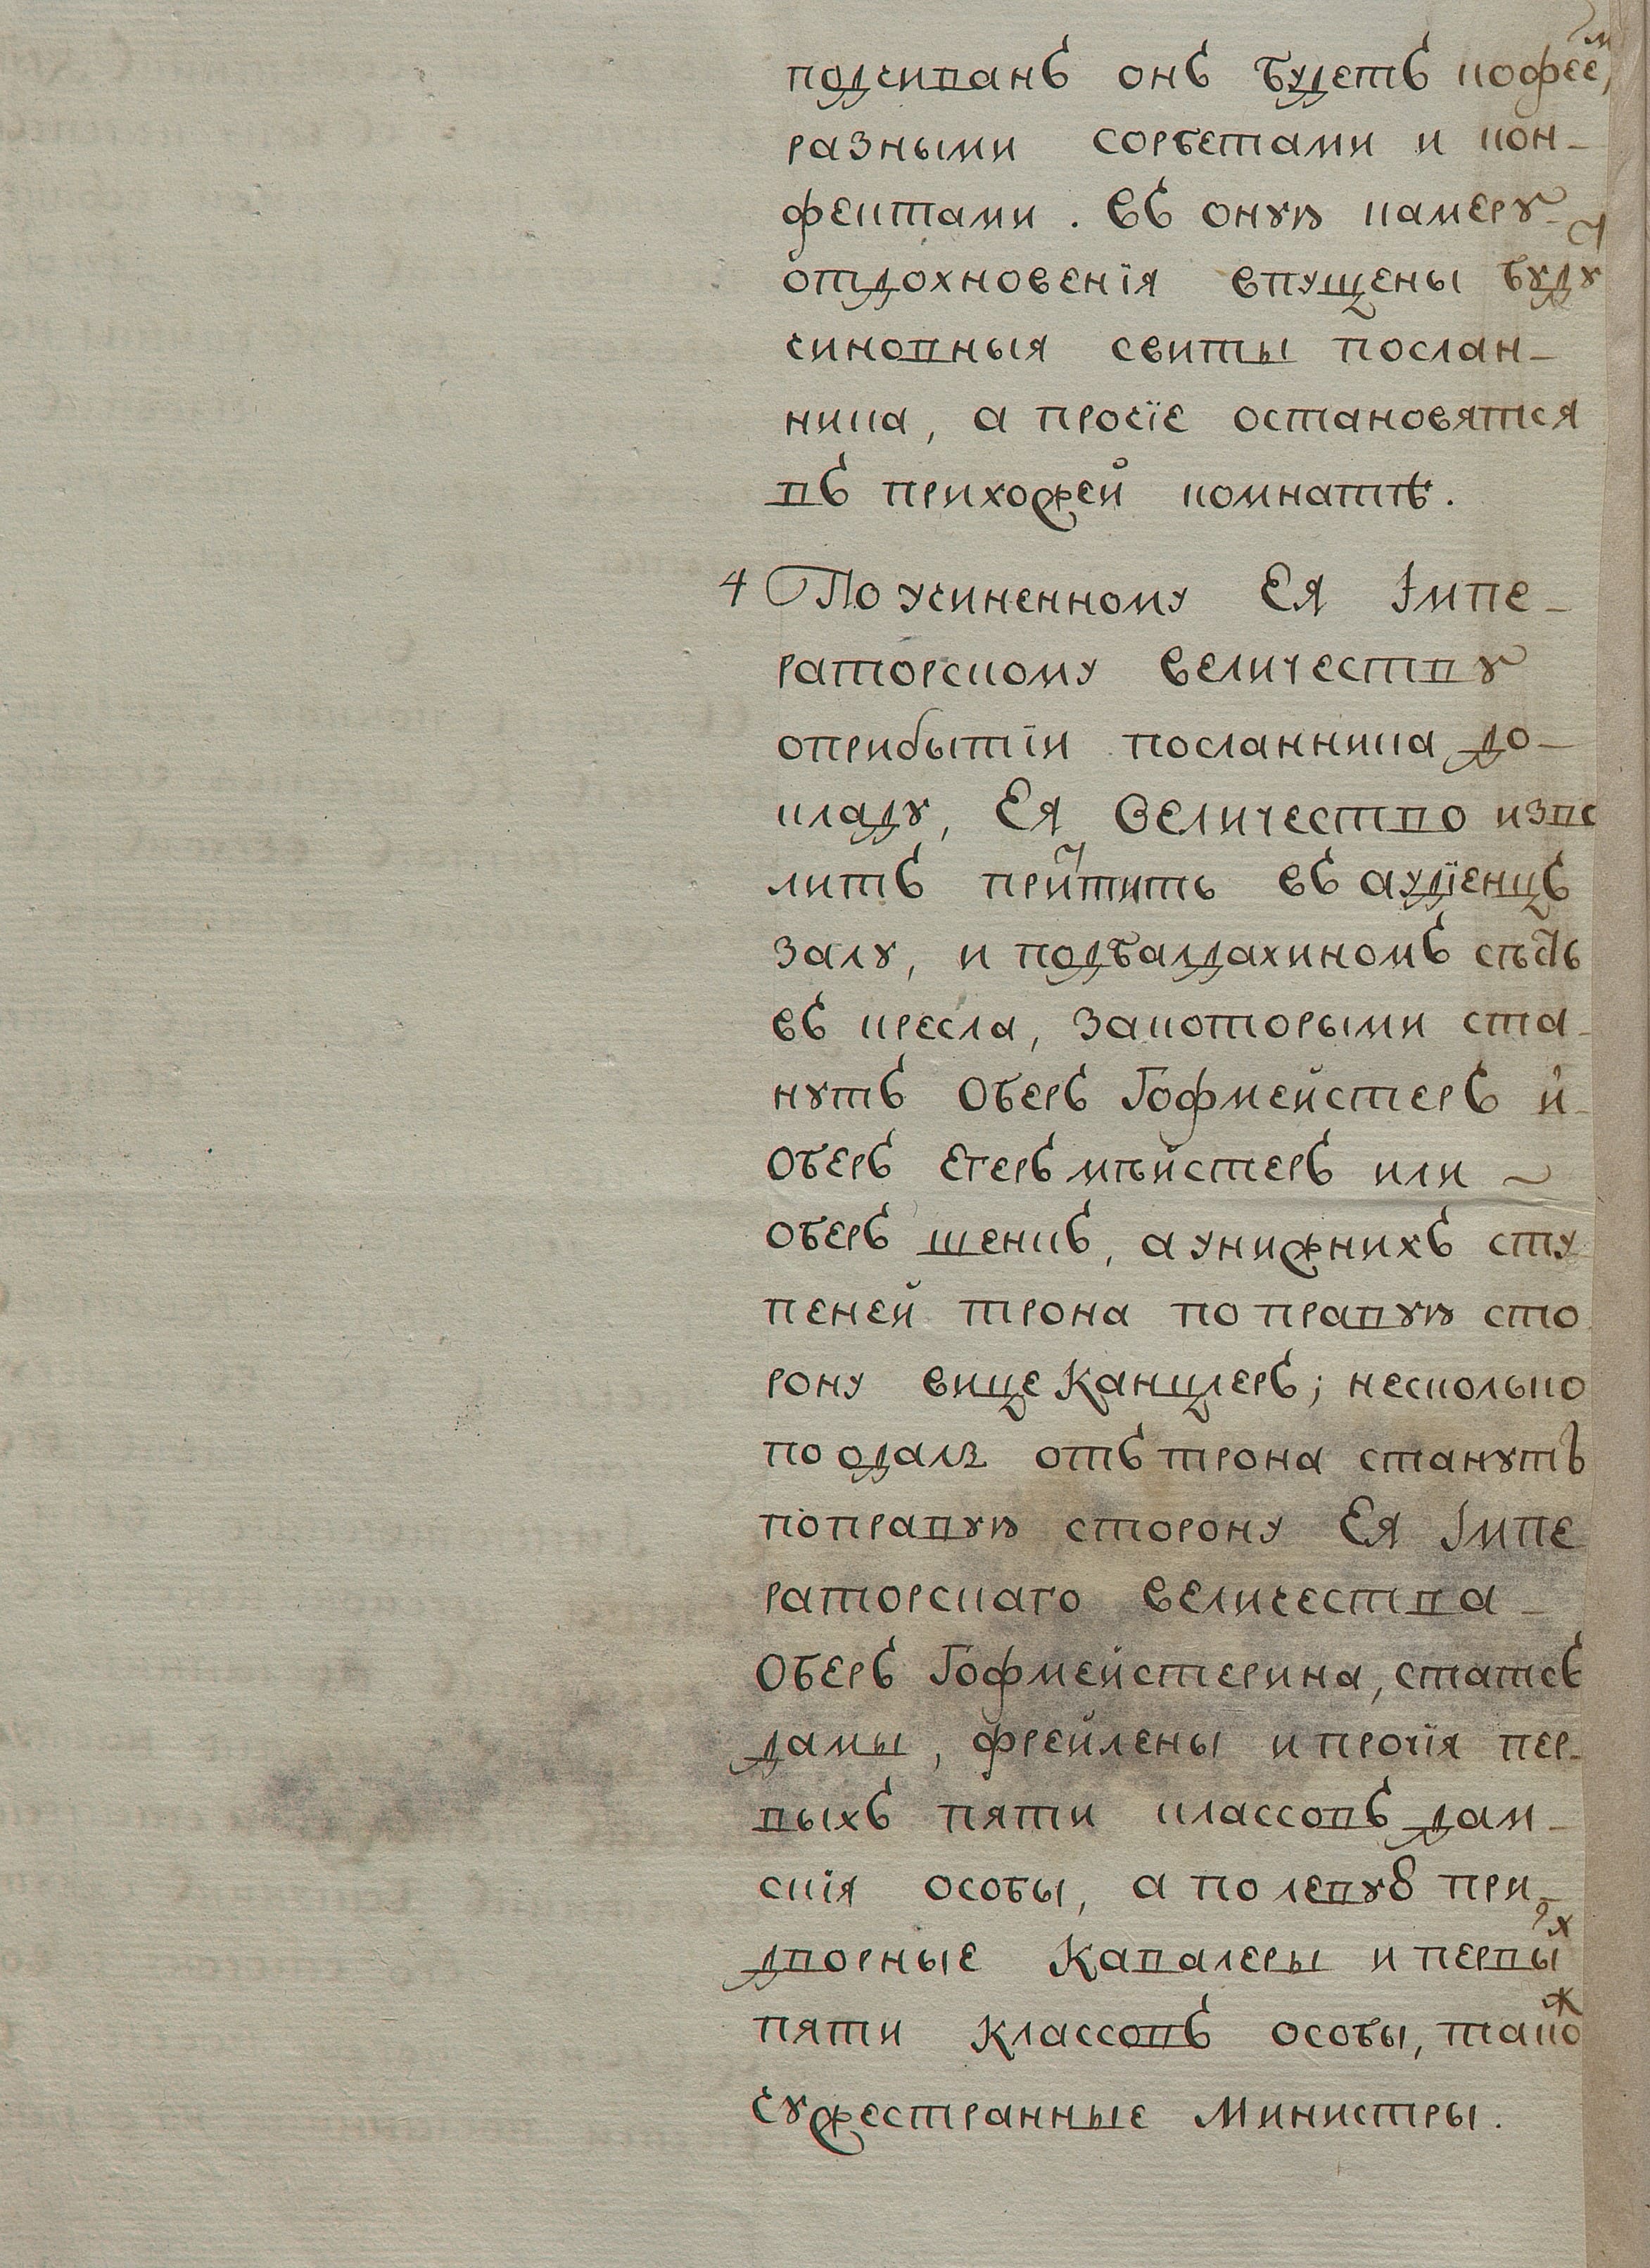 подчиванъ онъ будетъ кофеем,
разными сорбетами и кон-
фектами. въ оную камеру
отдохновенїя впущены будут
чиновныя свиты послан-
ника, а прочїе остановятся
въ прихожей комнатѣ.
4 По учиненному Ея Iмпе-
раторскому величеству
о прибытїи посланника до-
кладу, Ея Величество изво
литъ прийтить въ аудїенцъ
залу, и подбалдахиномъ сѣсть
въ кресла, за которыми ста-
нутъ Оберъ Гофмейстеръ и
Оберъ Егеръ мѣйстеръ или ~
оберъ шенкъ, а у нижнихъ сту
пеней трона по правую сто
рону вице Канцлеръ; несколько
поодаль отъ трона станутъ
по правую сторону Ея Iмпе
раторскаго величества -
Оберъ Гофмейстерина, статсъ
дамы, фрейлены и прочїя пер-
выхъ пяти классовъ дам-
скїя особы, а по левую при-
дворные Кавалеры и первыхъ
пяти Классовъ особы, також
чужестранные Министры.